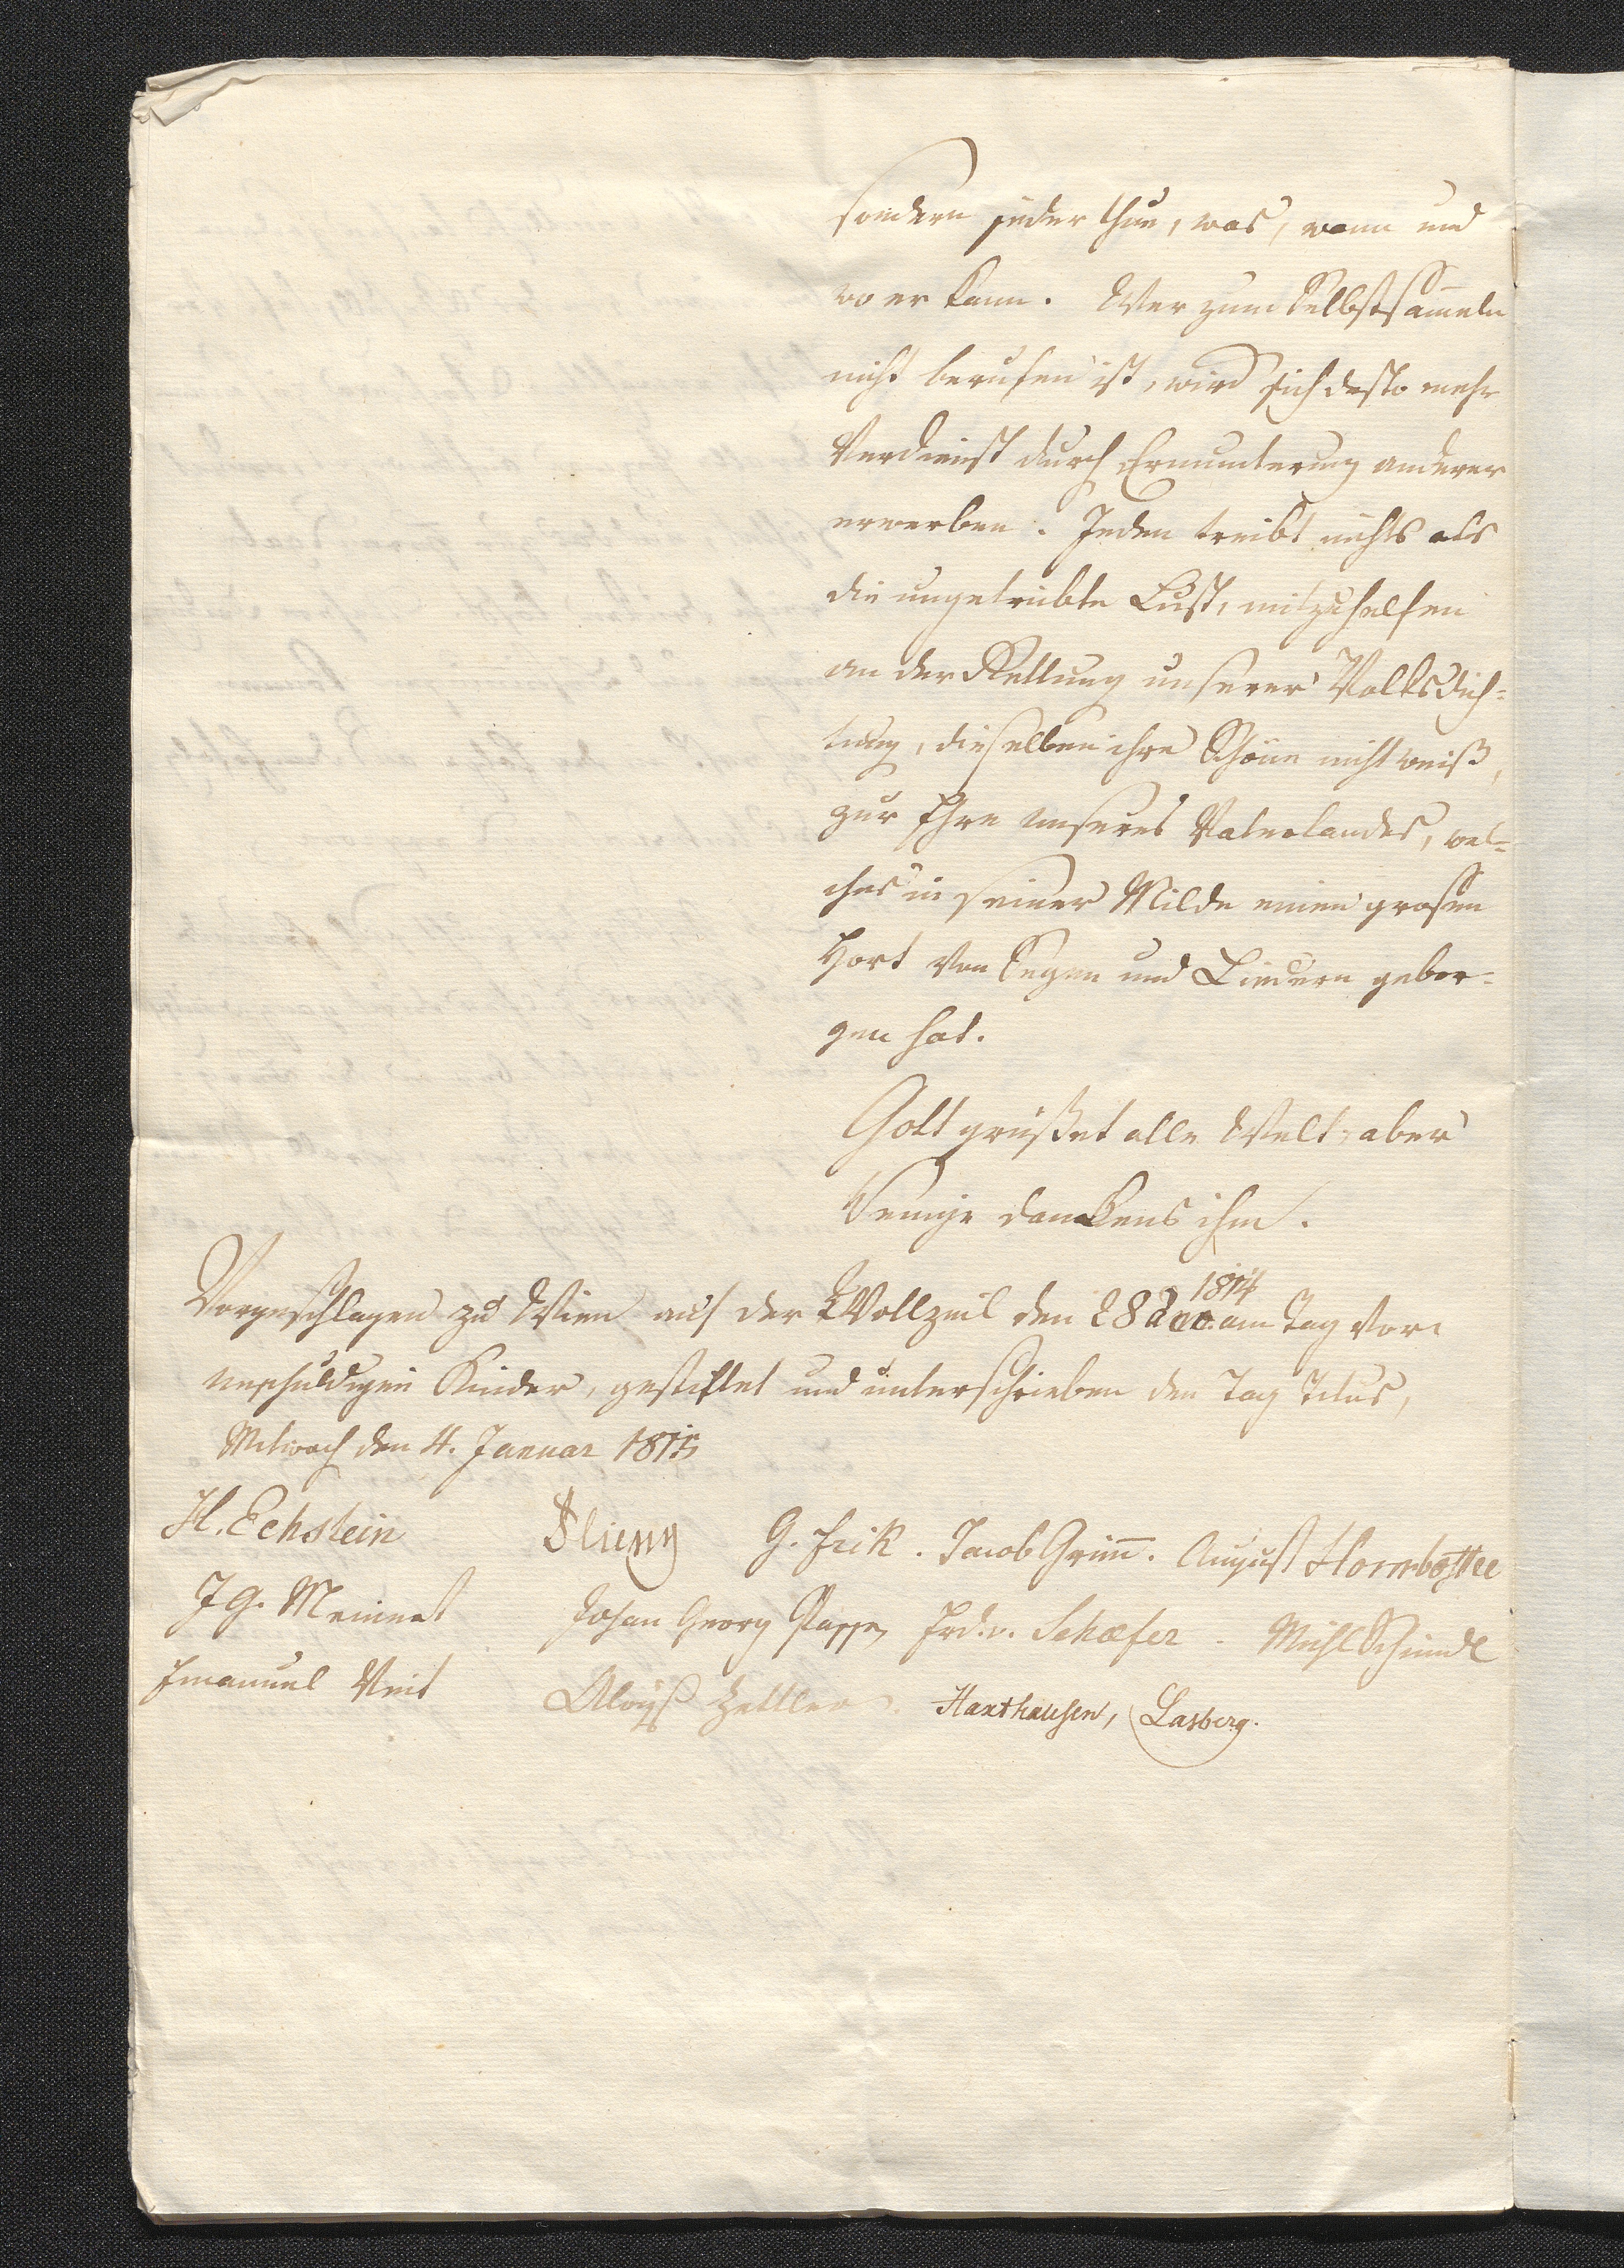 sondern jeder thue, was, wann und
wo er kann. Wer zum Selbstsam̄eln
nicht berufen ist, wird sich desto mehr
Verdienst durch Ermunterung anderer
erwerben. Jeden treibt nichts als
die ungetrübte Lust, mitzuhelfen
an der Rettung unserer Volksdich-
tung, dieselben ihre Schöne nicht weiß,
zur Ehre unseres Vaterlandes, wel-
ches in seiner Milde einen grosen
Hort von Sagen und Liedern gebor-
gen hat.
Gott grüßet alle Welt, aber
Wenige dankens ihm.
Vorgeschlagen zu Wien auf der Wollzeil den 28 dec. 1814 am Tag vor
unschuldigen Kinder, gestiftet und unterschrieben den Tag Titus,
Mitwoch den 4. Januar 1815
H. Eckstein G. Frik. Jacob Grim̄. August
J G. Meinert Johan Georg Passy Frd. v. Schæfer. Michl Schmidl
Emanuel Veit Aloys Zettler. Haxthausen, Lasberg.